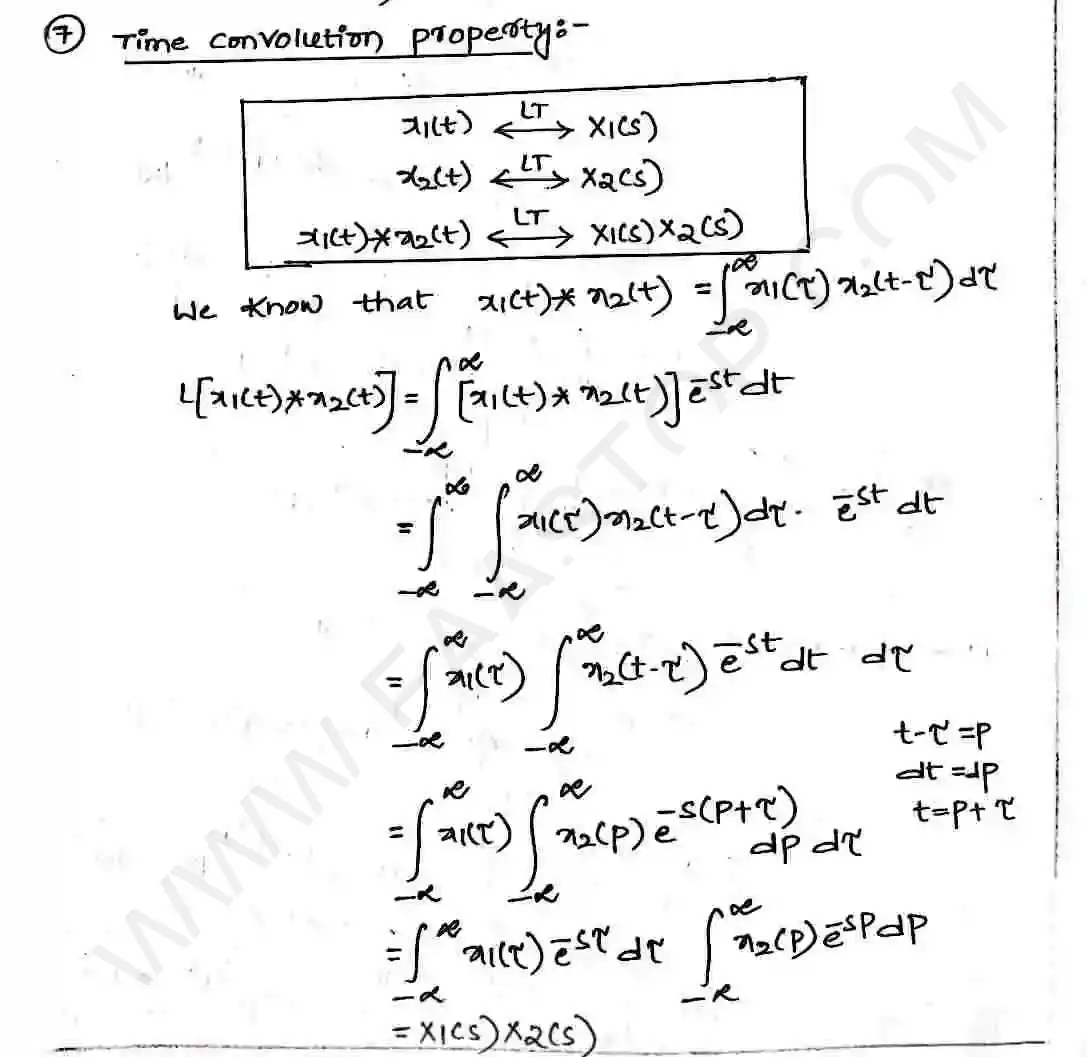 ⑦ Time convolution property:-
x1(t) <--LT--> X1(s)
x2(t) <--LT--> X2(s)
x1(t)*x2(t) <--LT--> X1(s)X2(s)
We know that x1(t)*x2(t) = ∫_{-∞}^{∞} x1(τ) x2(t-τ) dτ
L[x1(t)*x2(t)] = ∫_{-∞}^{∞} [x1(t)*x2(t)] e^{-st} dt
= ∫_{-∞}^{∞} ∫_{-∞}^{∞} x1(τ) x2(t-τ) dτ. e^{-st} dt
= ∫_{-∞}^{∞} x1(τ) ∫_{-∞}^{∞} x2(t-τ) e^{-st} dt dτ
t-τ=p
dt=dp
t=p+τ
= ∫_{-∞}^{∞} x1(τ) ∫_{-∞}^{∞} x2(p) e^{-s(p+τ)} dp dτ
= ∫_{-∞}^{∞} x1(τ) e^{-sτ} dτ ∫_{-∞}^{∞} x2(p) e^{-sp} dp
= X1(s) X2(s)